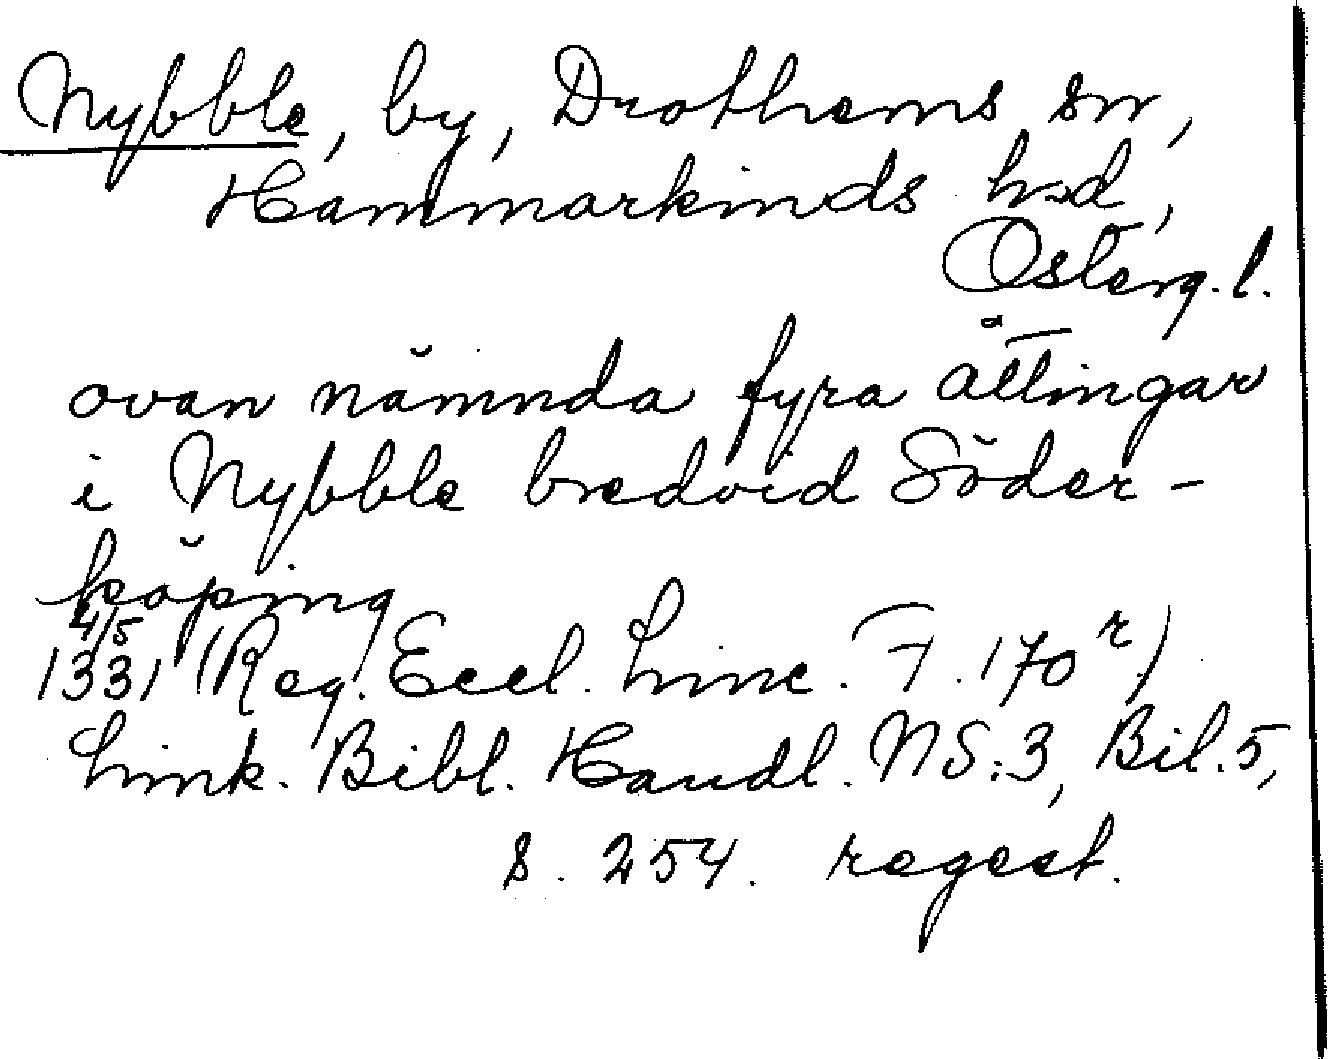 Nybble, by, Drothems sn,
Hammarkinds hsd,
Österg. l.
ovan nämnda fyra åttingar
i Nybble bredvid Söder-
köping
4/5
1331 (Reg. Eccl. Linc. F. 170 r)
Link. Bibl. Handl. NS:3, Bil. 5,
s. 254. regest.